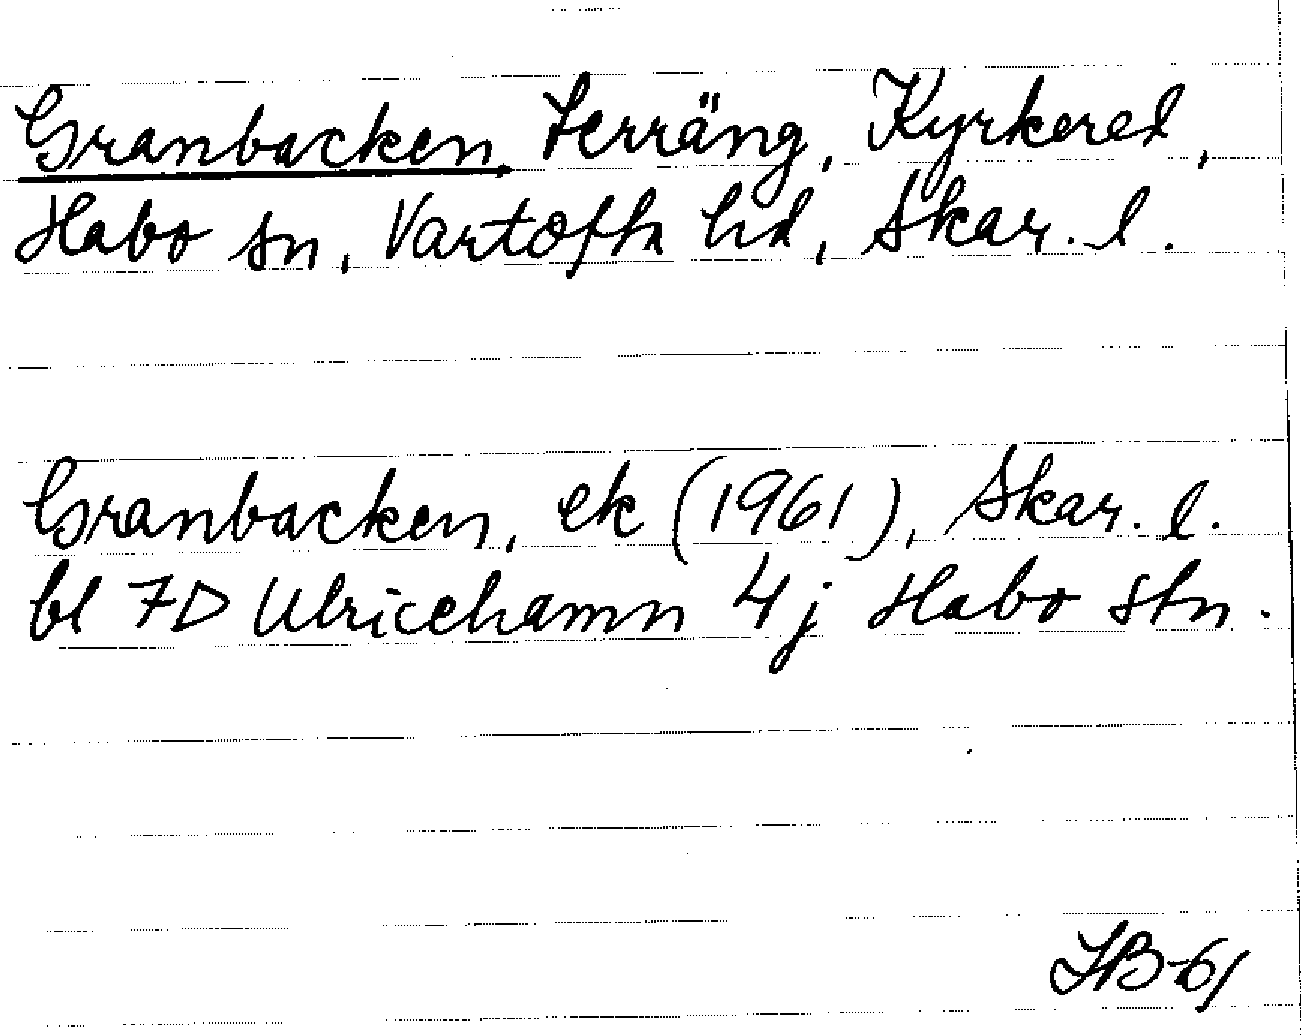 Granbacken, Terräng, Kyrkered,
Habo sn, Vartofta hd, Skar. l.
Granbacken, ek (1961), Skar. l.
bl 7D Ulricehamn 4j Habo stn.
IB-61